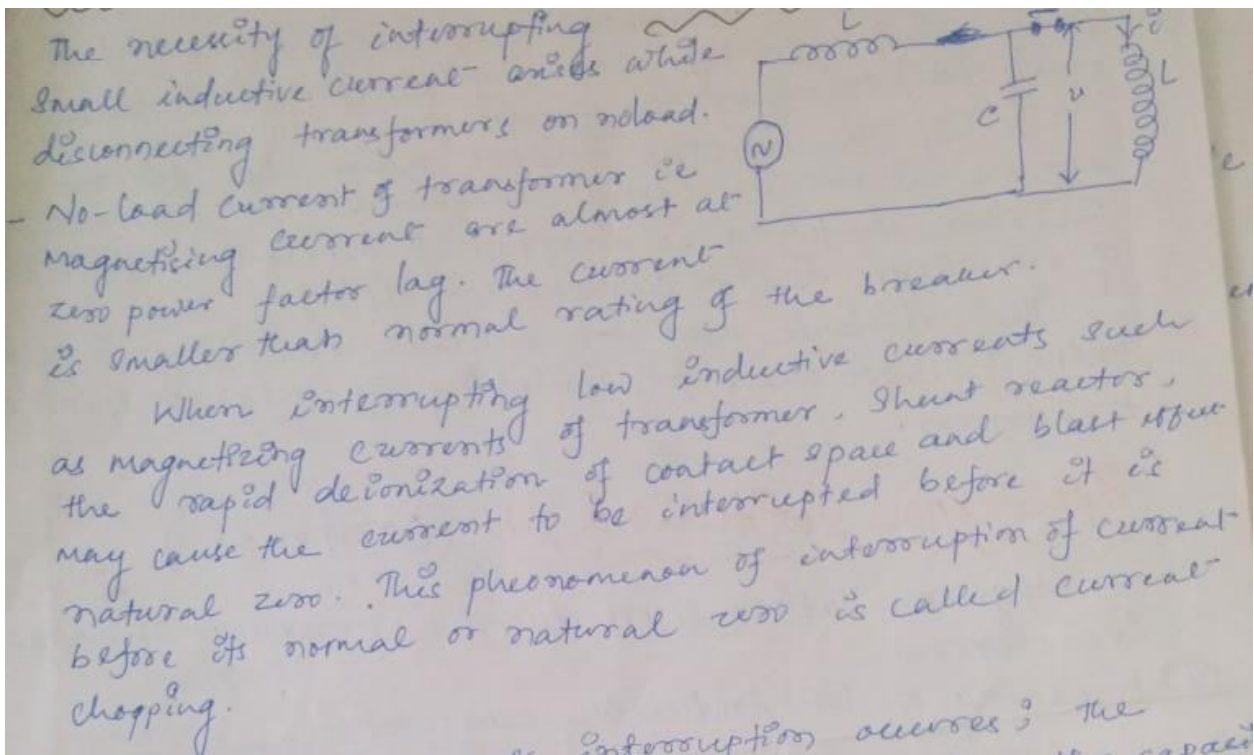 The necessity of interrupting
small inductive current arises while
disconnecting transformers on noload.
- No-load current of transformer ie
magnetising current are almost at
zero power factor lag. The current
is smaller than normal rating of the breaker.
When interrupting low inductive currents such
as magnetizing currents of transformer, shunt reactor,
the rapid deionization of contact space and blast effect
may cause the current to be interrupted before it is
natural zero. This pheonomenon of interruption of current
before its normal or natural zero is called current
chopping.
interruption occures; the
L
C
v
i
L
N